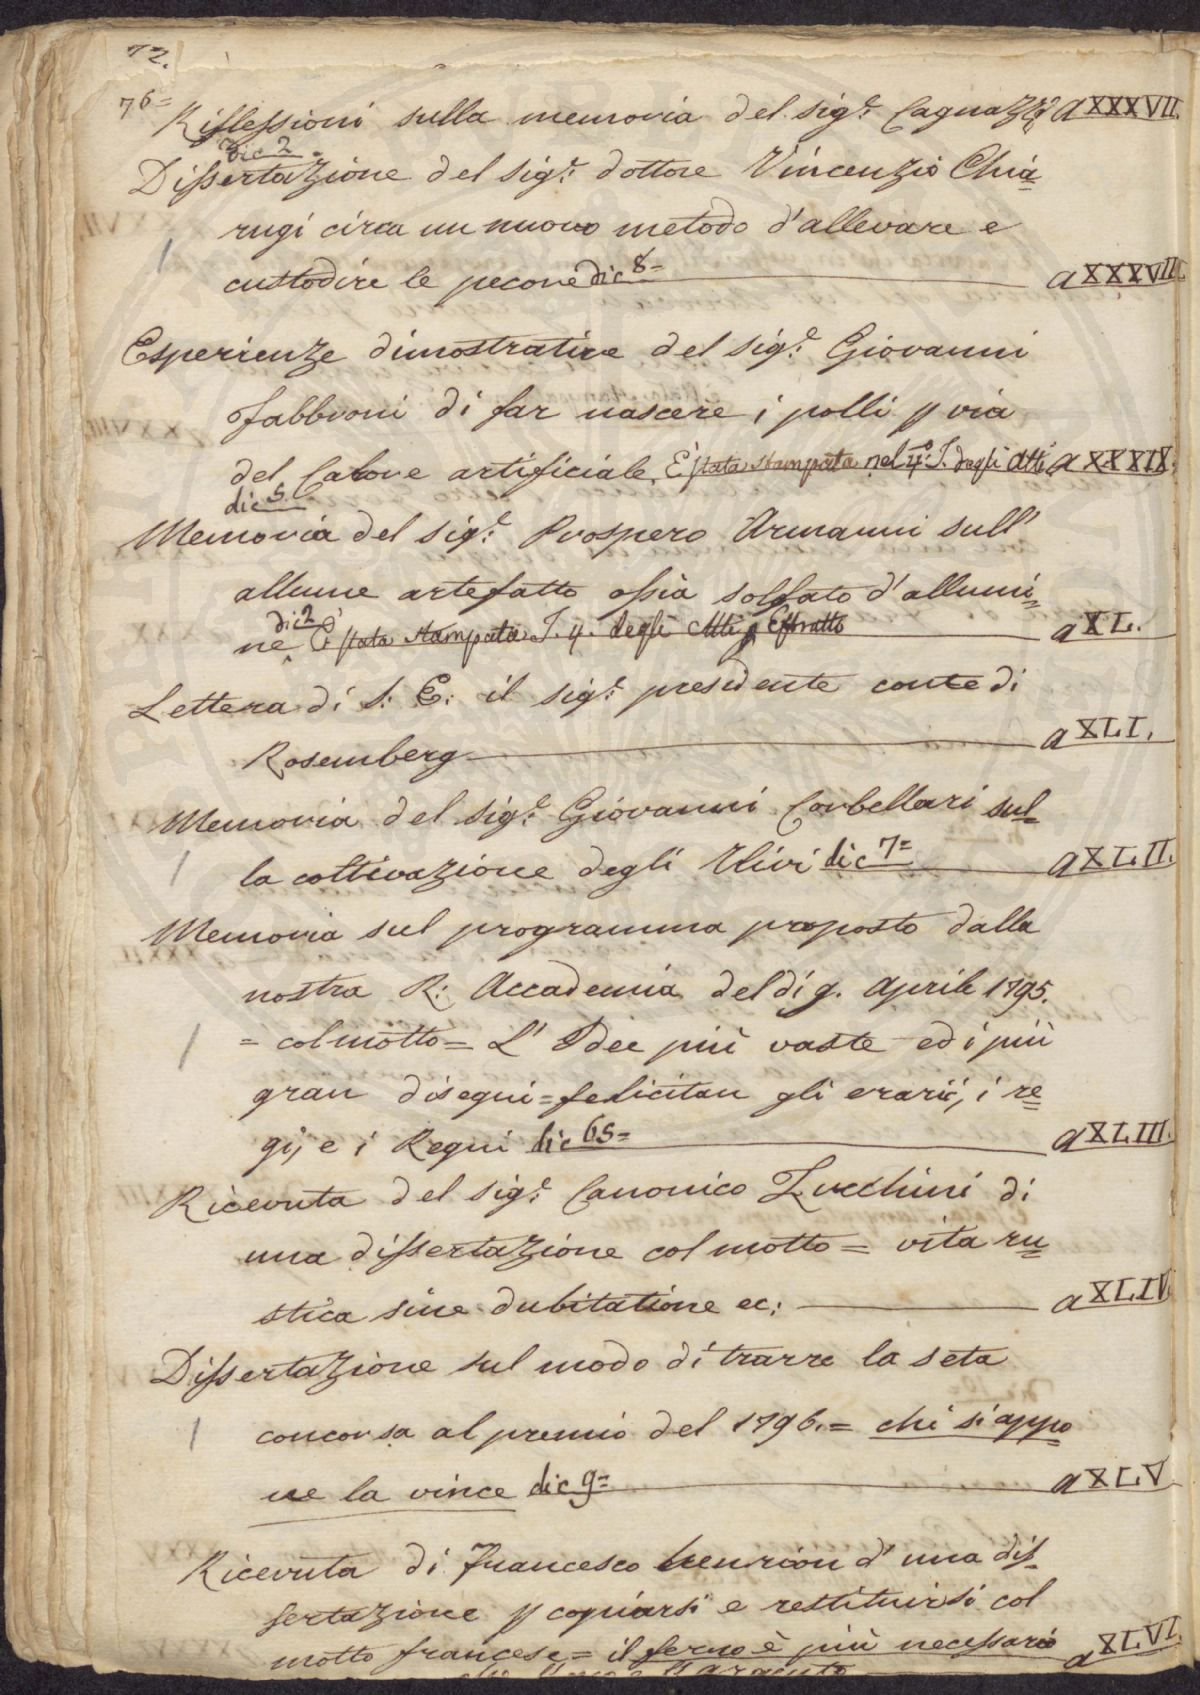 72.
76=
Riflessioni sulla memoria del sig.e Cagnazzi a XXXVII.
dic 2=
Dissertazione del sig.e dottore Vincenzio Chia=
rugi circa un nuovo metodo d'allevare e
custodire le pecore dic 8= a XXXVIII.
Esperienze dimostrative del sig.e Giovanni
Fabbroni di far nascere i polli p via
del Calore artificiale. È stata stampata nel 4.o T. degli Atti a XXXIX.
dic 5
Memoria del sig.e Prospero Armanni sull'
allume artefatto ossia solfato d'allumi=
dic 2
ne, È stata stampata T. 4. degli Atti p Estratto a XL.
Lettera di S: E: il sig.e presidente conte di
Rosemberg a XLI.
Memoria del sig.e Giovanni Corbellari sul=
la coltivazione degli Ulivi dic 7= a XLII.
Memoria sul programma proposto dalla
nostra R: Accademia del dì 9. Aprile 1795.
= col motto = L' Idee più vaste ed i più
gran disegni = felicitan gli erarii, i re=
gi, e i Regni dic 65= a XLIII.
Ricevuta del sig.e Canonico Zucchini di
una dissertazione col motto = vita ru=
stica sine dubitatione ec: a XLIV.
Dissertazione sul modo di trarre la seta
concorsa al premio del 1796. = chi si appo
ne la vince dic 9= a XLV
Ricevuta di Francesco henrion d' una dis=
sertazione p copiarsi e restituirsi col
motto francese = il ferro è più necessario
a XLVI.
che l'oro e l'Argento